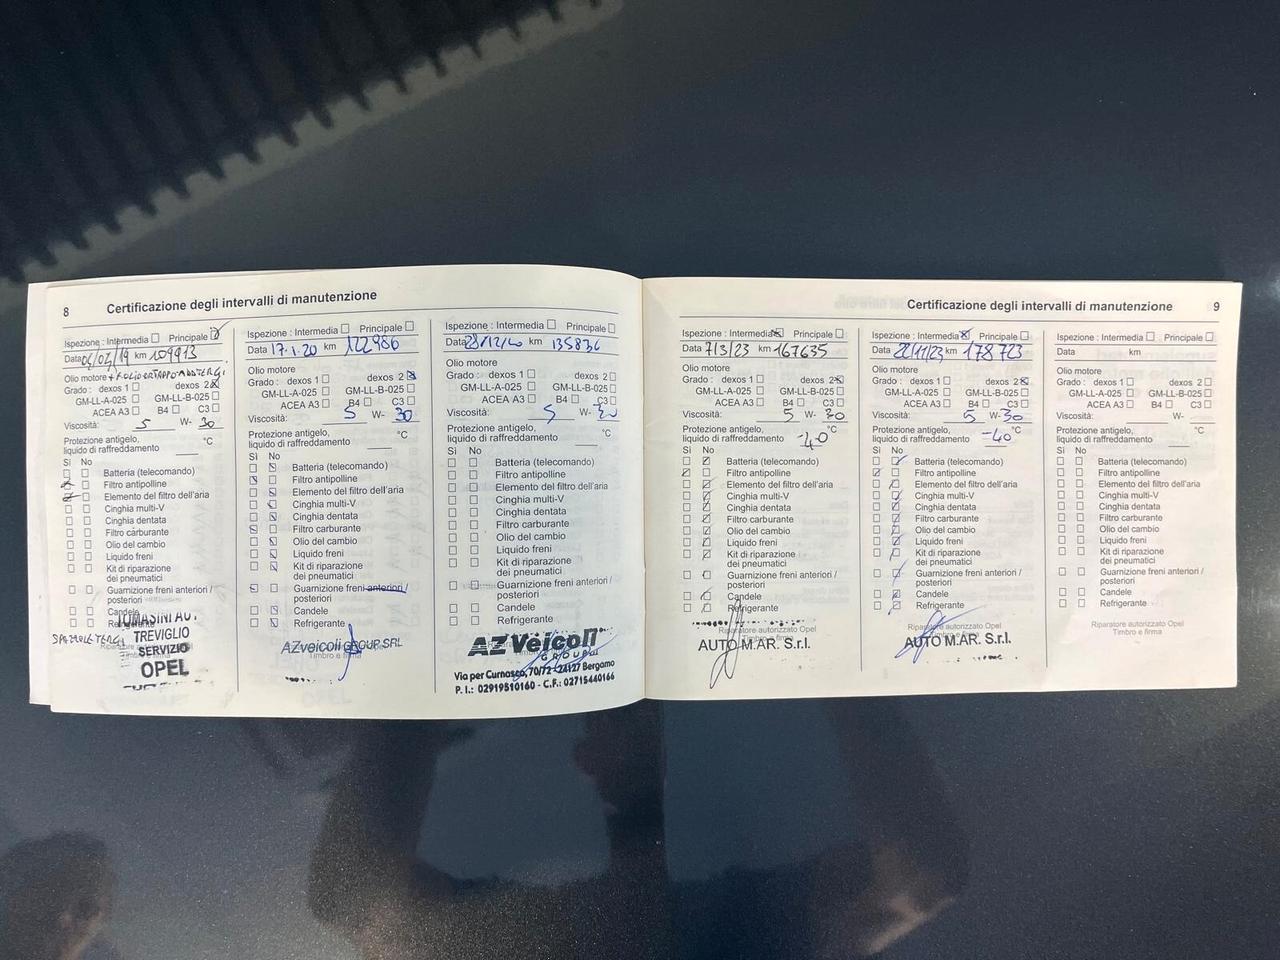 8 Certificazione degli intervalli di manutenzione
Ispezione : Intermedia Principale
Data 04/02/19 km 109913
Olio motore
Grado : dexos 1 dexos 2
GM-LL-A-025 GM-LL-B-025
ACEA A3 B4 C3
Viscosità: 5 W- 30
Protezione antigelo, °C
liquido di raffreddamento
Sì No
Batteria (telecomando)
Filtro antipolline
Elemento del filtro dell'aria
Cinghia multi-V
Cinghia dentata
Filtro carburante
Olio del cambio
Liquido freni
Kit di riparazione
dei pneumatici
Guarnizione freni anteriori /
posteriori
Candele
Refrigerante
SPAZZOLE TERGI
TOMASINI AUTO
TREVIGLIO
SERVIZIO
OPEL
Ispezione : Intermedia Principale
Data 17.1.20 km 122986
Olio motore
Grado : dexos 1 dexos 2
GM-LL-A-025 GM-LL-B-025
ACEA A3 B4 C3
Viscosità: 5 W- 30
Protezione antigelo, °C
liquido di raffreddamento
Sì No
Batteria (telecomando)
Filtro antipolline
Elemento del filtro dell'aria
Cinghia multi-V
Cinghia dentata
Filtro carburante
Olio del cambio
Liquido freni
Kit di riparazione
dei pneumatici
Guarnizione freni anteriori /
posteriori
Candele
Refrigerante
AZveicoli GROUP SRL
Timbro e firma
Ispezione : Intermedia Principale
Data 28/12/20 km 135836
Olio motore
Grado : dexos 1 dexos 2
GM-LL-A-025 GM-LL-B-025
ACEA A3 B4 C3
Viscosità: 5 W- 30
Protezione antigelo, °C
liquido di raffreddamento
Sì No
Batteria (telecomando)
Filtro antipolline
Elemento del filtro dell'aria
Cinghia multi-V
Cinghia dentata
Filtro carburante
Olio del cambio
Liquido freni
Kit di riparazione
dei pneumatici
Guarnizione freni anteriori /
posteriori
Candele
Refrigerante
AZ Veicoli
GROUP
Via per Curnasco, 70/72 - 24127 Bergamo
P. I.: 02919510160 - C.F.: 02715440166
Certificazione degli intervalli di manutenzione 9
Ispezione : Intermedia Principale
Data 7/3/23 km 167635
Olio motore
Grado : dexos 1 dexos 2
GM-LL-A-025 GM-LL-B-025
ACEA A3 B4 C3
Viscosità: 5 W- 30
Protezione antigelo, °C
liquido di raffreddamento -40
Sì No
Batteria (telecomando)
Filtro antipolline
Elemento del filtro dell'aria
Cinghia multi-V
Cinghia dentata
Filtro carburante
Olio del cambio
Liquido freni
Kit di riparazione
dei pneumatici
Guarnizione freni anteriori /
posteriori
Candele
Refrigerante
Riparatore autorizzato Opel
AUTO M.AR. S.r.l.
Ispezione : Intermedia Principale
Data 22/11/23 km 178723
Olio motore
Grado : dexos 1 dexos 2
GM-LL-A-025 GM-LL-B-025
ACEA A3 B4 C3
Viscosità: 5 W- 30
Protezione antigelo, °C
liquido di raffreddamento -40
Sì No
Batteria (telecomando)
Filtro antipolline
Elemento del filtro dell'aria
Cinghia multi-V
Cinghia dentata
Filtro carburante
Olio del cambio
Liquido freni
Kit di riparazione
dei pneumatici
Guarnizione freni anteriori /
posteriori
Candele
Refrigerante
Riparatore autorizzato Opel
AUTO M.AR. S.r.l.
Ispezione : Intermedia Principale
Data km
Olio motore
Grado : dexos 1 dexos 2
GM-LL-A-025 GM-LL-B-025
ACEA A3 B4 C3
Viscosità: W-
Protezione antigelo, °C
liquido di raffreddamento
Sì No
Batteria (telecomando)
Filtro antipolline
Elemento del filtro dell'aria
Cinghia multi-V
Cinghia dentata
Filtro carburante
Olio del cambio
Liquido freni
Kit di riparazione
dei pneumatici
Guarnizione freni anteriori /
posteriori
Candele
Refrigerante
Riparatore autorizzato Opel
Timbro e firma